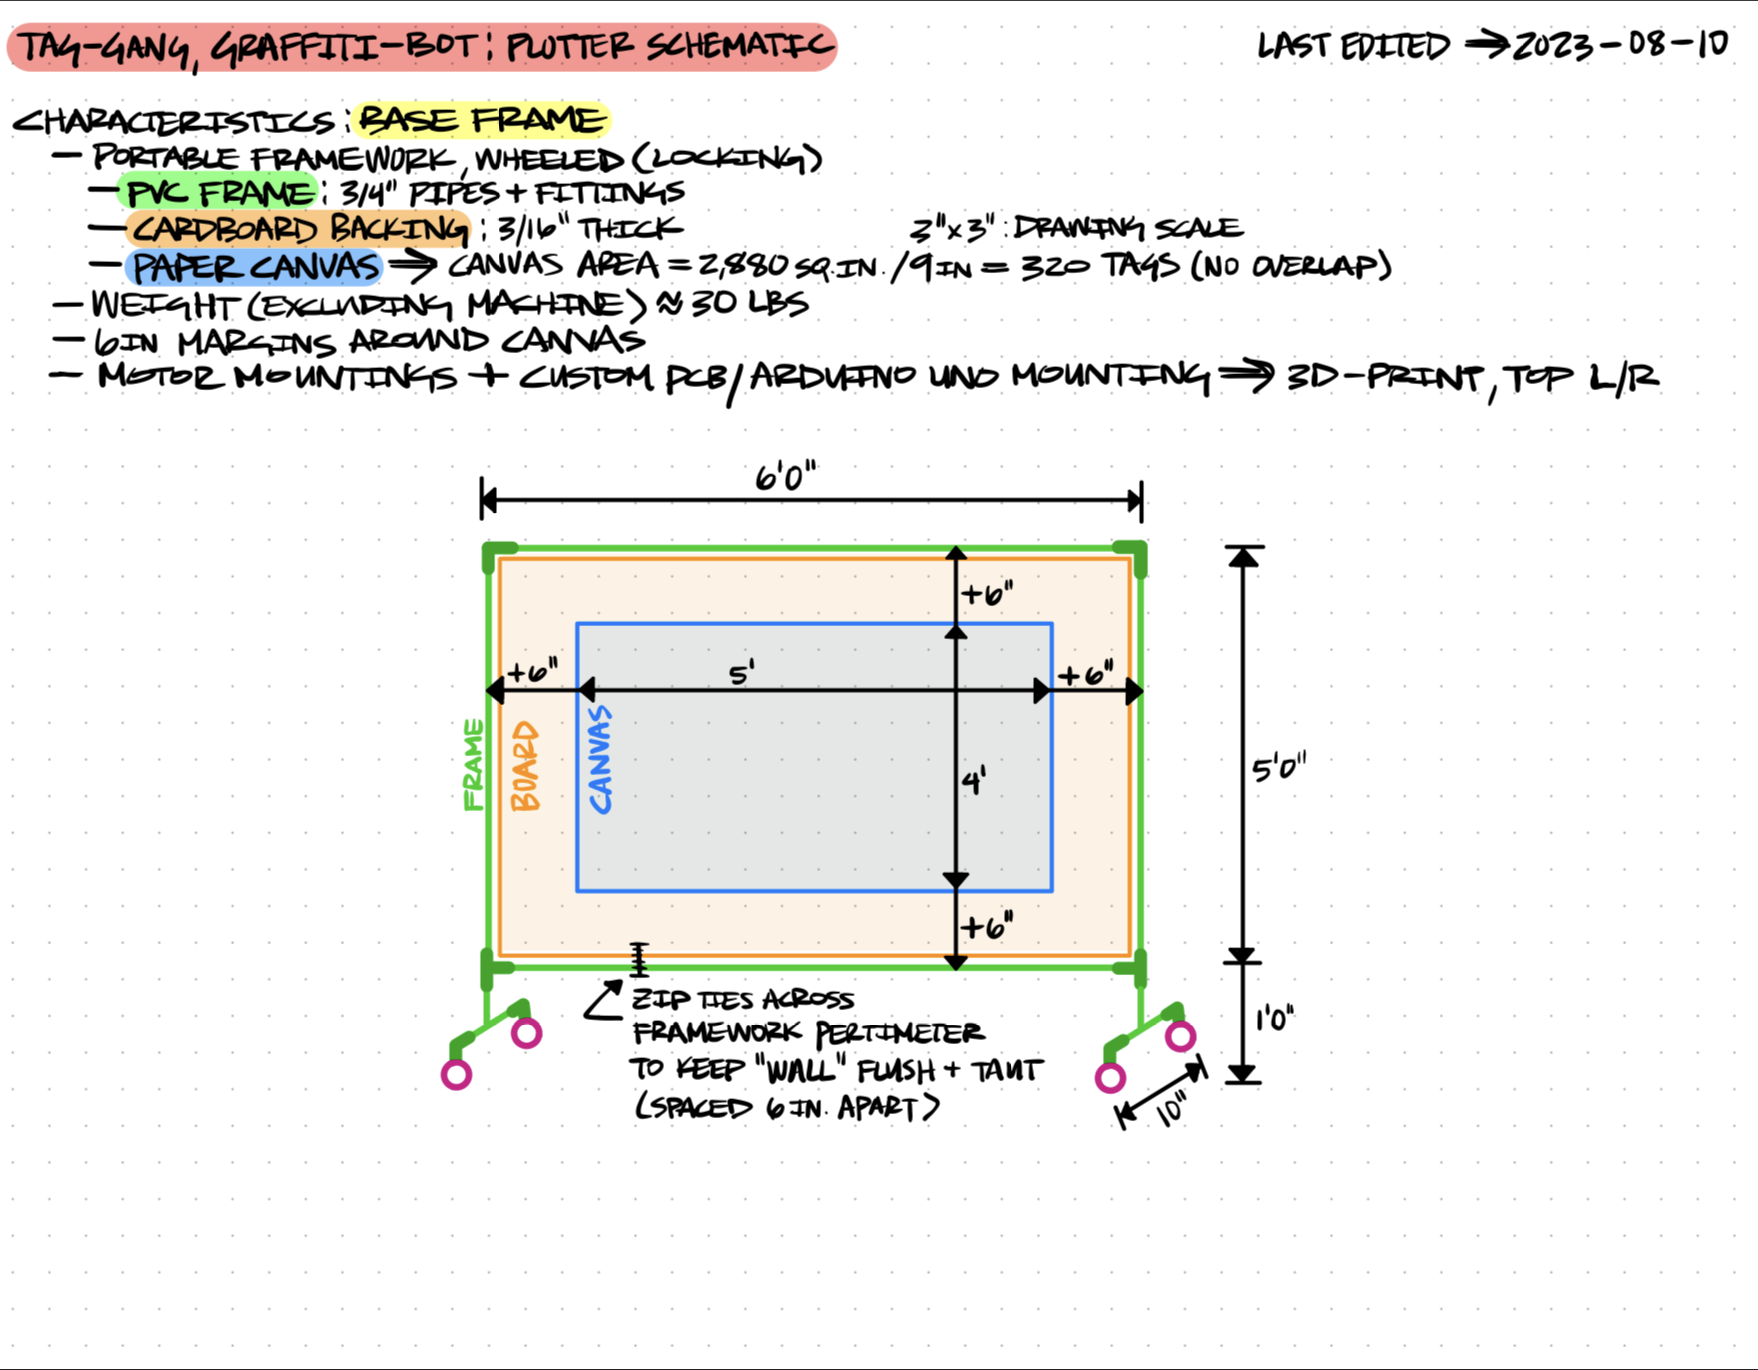 TAG-GANG, GRAFFITI-BOT: PLOTTER SCHEMATIC
LAST EDITED → 2023-08-10
CHARACTERISTICS: BASE FRAME
— PORTABLE FRAMEWORK, WHEELED (LOCKING)
— PVC FRAME: 3/4" PIPES + FITTINGS
— CARDBOARD BACKING: 3/16" THICK
3"x3": DRAWING SCALE
— PAPER CANVAS ⇒ CANVAS AREA = 2,880 SQ.IN. / 9IN = 320 TAGS (NO OVERLAP)
— WEIGHT (EXCLUDING MACHINE) ≈ 30 LBS
— 6IN MARGINS AROUND CANVAS
— MOTOR MOUNTINGS + CUSTOM PCB/ARDUINO UNO MOUNTING ⇒ 3D-PRINT, TOP L/R
6'0"
+6"
+6"
5'
+6"
FRAME
BOARD
CANVAS
4'
5'0"
+6"
ZIP TIES ACROSS
FRAMEWORK PERTIMETER
TO KEEP "WALL" FLUSH + TAUT
(SPACED 6 IN. APART)
1'0"
10"